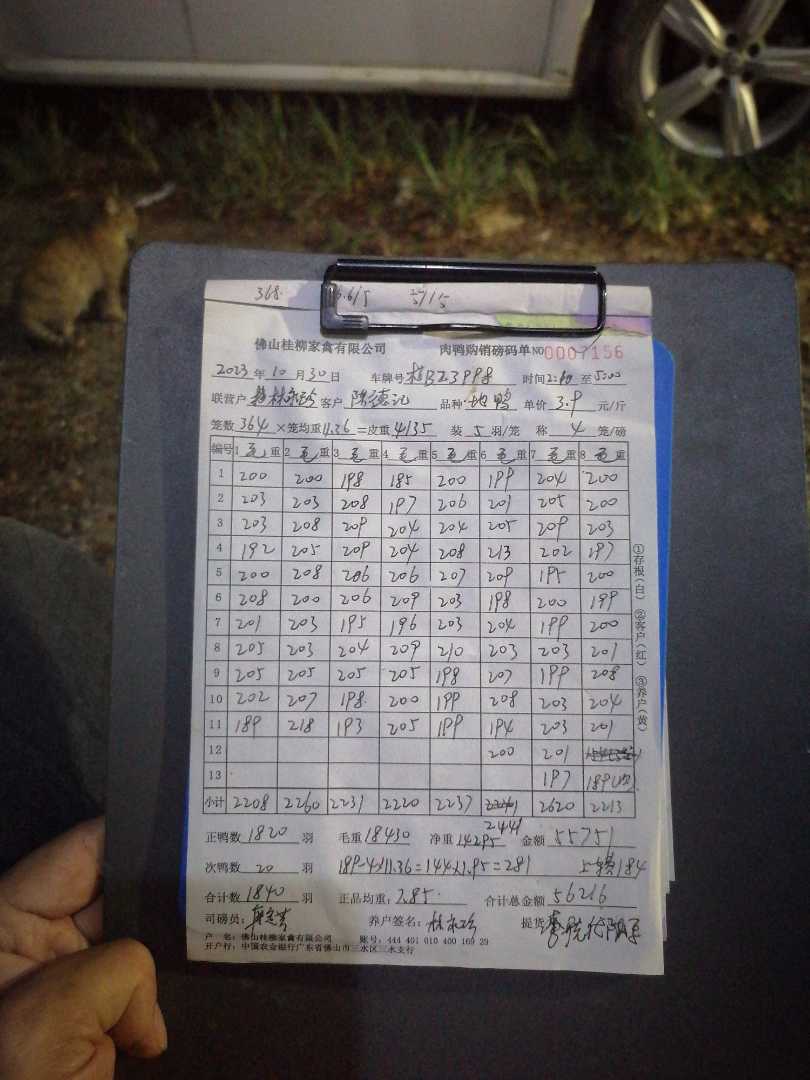 368. 5715
佛山桂柳家禽有限公司 肉鸭购销磅码单 NO 0007156
2023 年 10 月 30 日 车牌号 桂BZ3998 时间 2: 至 5:00
联营户 林 客户 陈德记 品种 地鸭 单价 3.9 元/斤
笼数 364 ×笼均重 11.36 =皮重 4135 装 5 羽/笼 称 4 笼/磅
编号 1 毛 重 2 毛 重 3 毛 重 4 毛 重 5 毛 重 6 毛 重 7 毛 重 8 毛 重
1 200 200 198 185 200 199 204 200
2 203 203 208 197 206 201 205 200
3 203 208 209 204 204 205 209 203
4 192 205 209 204 208 213 202 197
5 200 208 206 206 207 209 195 200
6 208 200 206 209 203 198 200 199
7 201 203 195 196 203 204 199 200
8 205 203 204 209 210 203 203 201
9 205 205 205 205 198 207 199 208
10 202 207 198 200 199 208 203 204
11 189 218 193 205 199 194 203 201
12 200 201
13 197 189
小计 2208 2260 2231 2220 2237 2441 2620 2213
正鸭数 1820 羽 毛重 18430 净重 14295 金额 55751
次鸭数 20 羽 189-4×11.36=144×1.95=281 上 184
合计数 1840 羽 正品均重: 7.85. 合计总金额 56216
司磅员: 养户签名: 林 提货
户 名: 佛山桂柳家禽有限公司 账号: 444 401 010 400 169 29
开户行: 中国农业银行广东省佛山市三水区三水支行
①存根(白) ②客户(红) ③养户(黄)